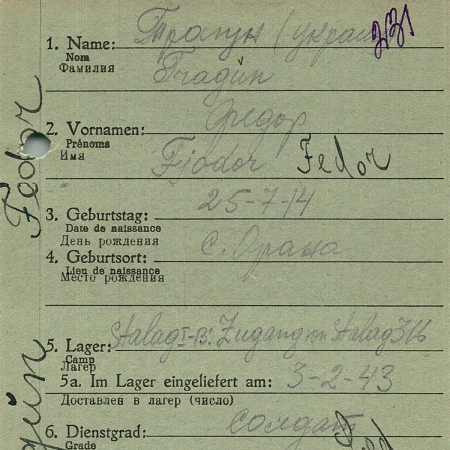 1. Name: Трагун (украи 231
Nom
Фамилия
Tragun
2. Vornamen: Федор
Prénoms
Имя
Fjodor Fedor
3. Geburtstag: 25-7-14
Date de naissance
День рождения
4. Geburtsort: с. Орана
Lieu de naissance
Место рождения
5. Lager: Stalag I-B. Zugang von Stalag 316
Camp
Лагерь
5a. Im Lager eingeliefert am: 3-2-43
Доставлен в лагерь (число)
6. Dienstgrad: солдат
Grade
Fedor